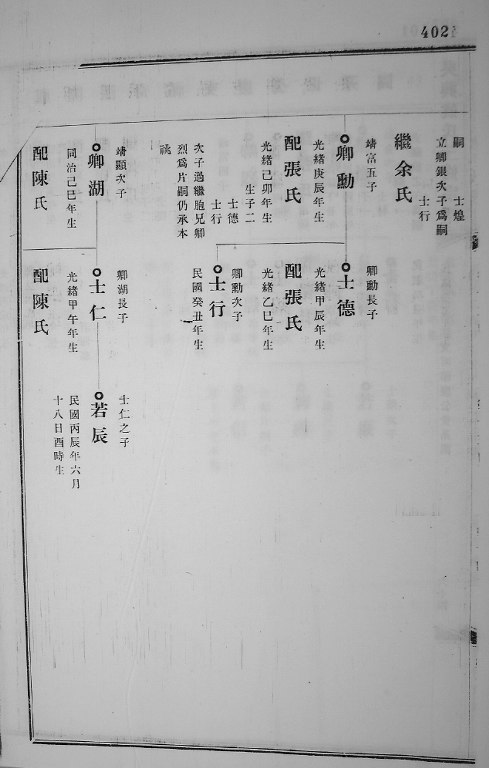 402
嗣　士煌
立卿銀次子為嗣
士行
繼余氏
靖富五子
卿勳
光緒庚辰年生
配張氏
光緒己卯年生
生子二
士德
士行
次子過繼胞兄卿
烈為片嗣仍承本
祧
靖顯次子
卿湖
同治己巳年生
配陳氏
卿勳長子
士德
光緒甲辰年生
配張氏
光緒乙巳年生
卿勳次子
士行
民國癸丑年生
卿湖長子
士仁
光緒甲午年生
配陳氏
士仁之子
若辰
民國丙辰年六月
十八日酉時生